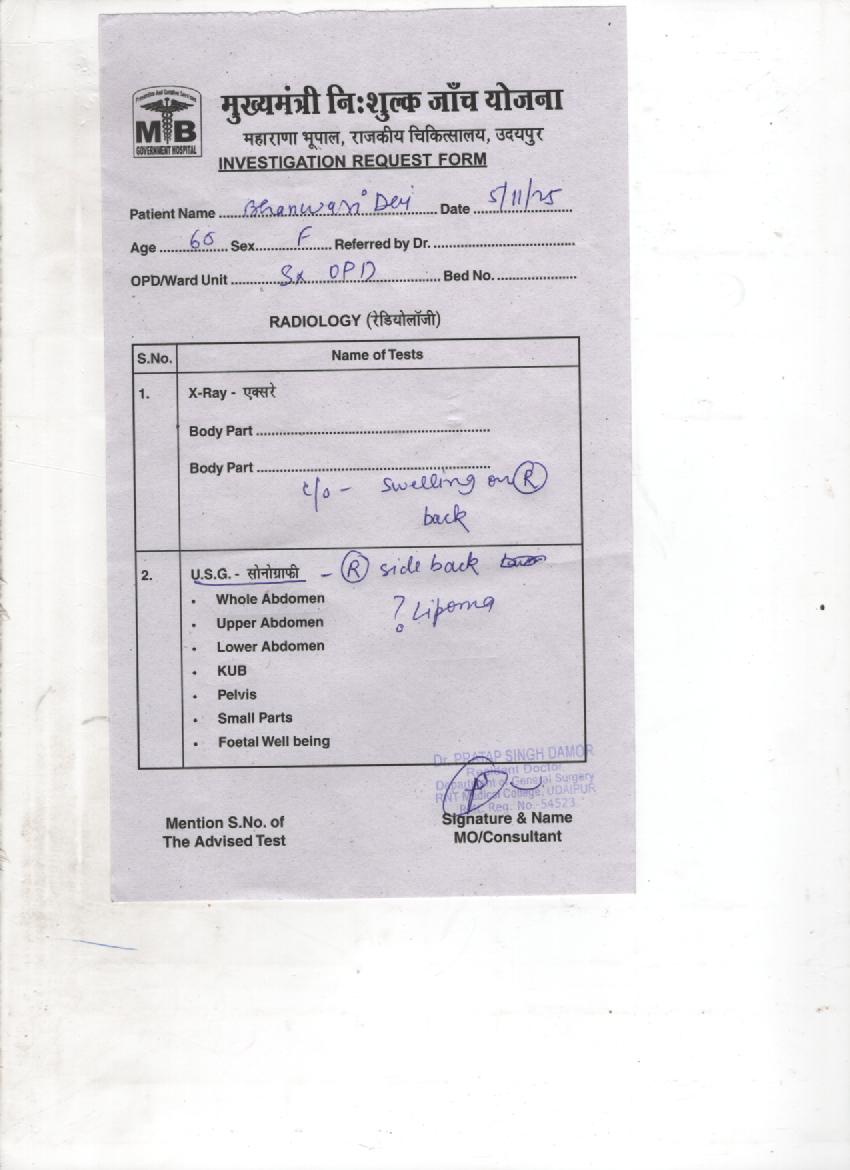 Preventive And Curative Services
MB
GOVERNMENT HOSPITAL
मुख्यमंत्री नि:शुल्क जाँच योजना
महाराणा भूपाल, राजकीय चिकित्सालय, उदयपुर
INVESTIGATION REQUEST FORM
Patient Name Bhanwari Devi Date 5/11/25
Age 60 Sex F Referred by Dr.
OPD/Ward Unit Sx OPD Bed No.
RADIOLOGY (रेडियोलॉजी)
S.No. Name of Tests
1. X-Ray - एक्सरे
Body Part
Body Part
c/o - swelling on R
back
2. U.S.G. - सोनोग्राफी - R side back
• Whole Abdomen
? Lipoma
• Upper Abdomen
• Lower Abdomen
• KUB
• Pelvis
• Small Parts
• Foetal Well being
Dr. PRATAP SINGH DAMOR
Resident Doctor,
Department of General Surgery
RNT Medical College, UDAIPUR
Reg. No.-54523
Mention S.No. of
The Advised Test
Signature & Name
MO/Consultant